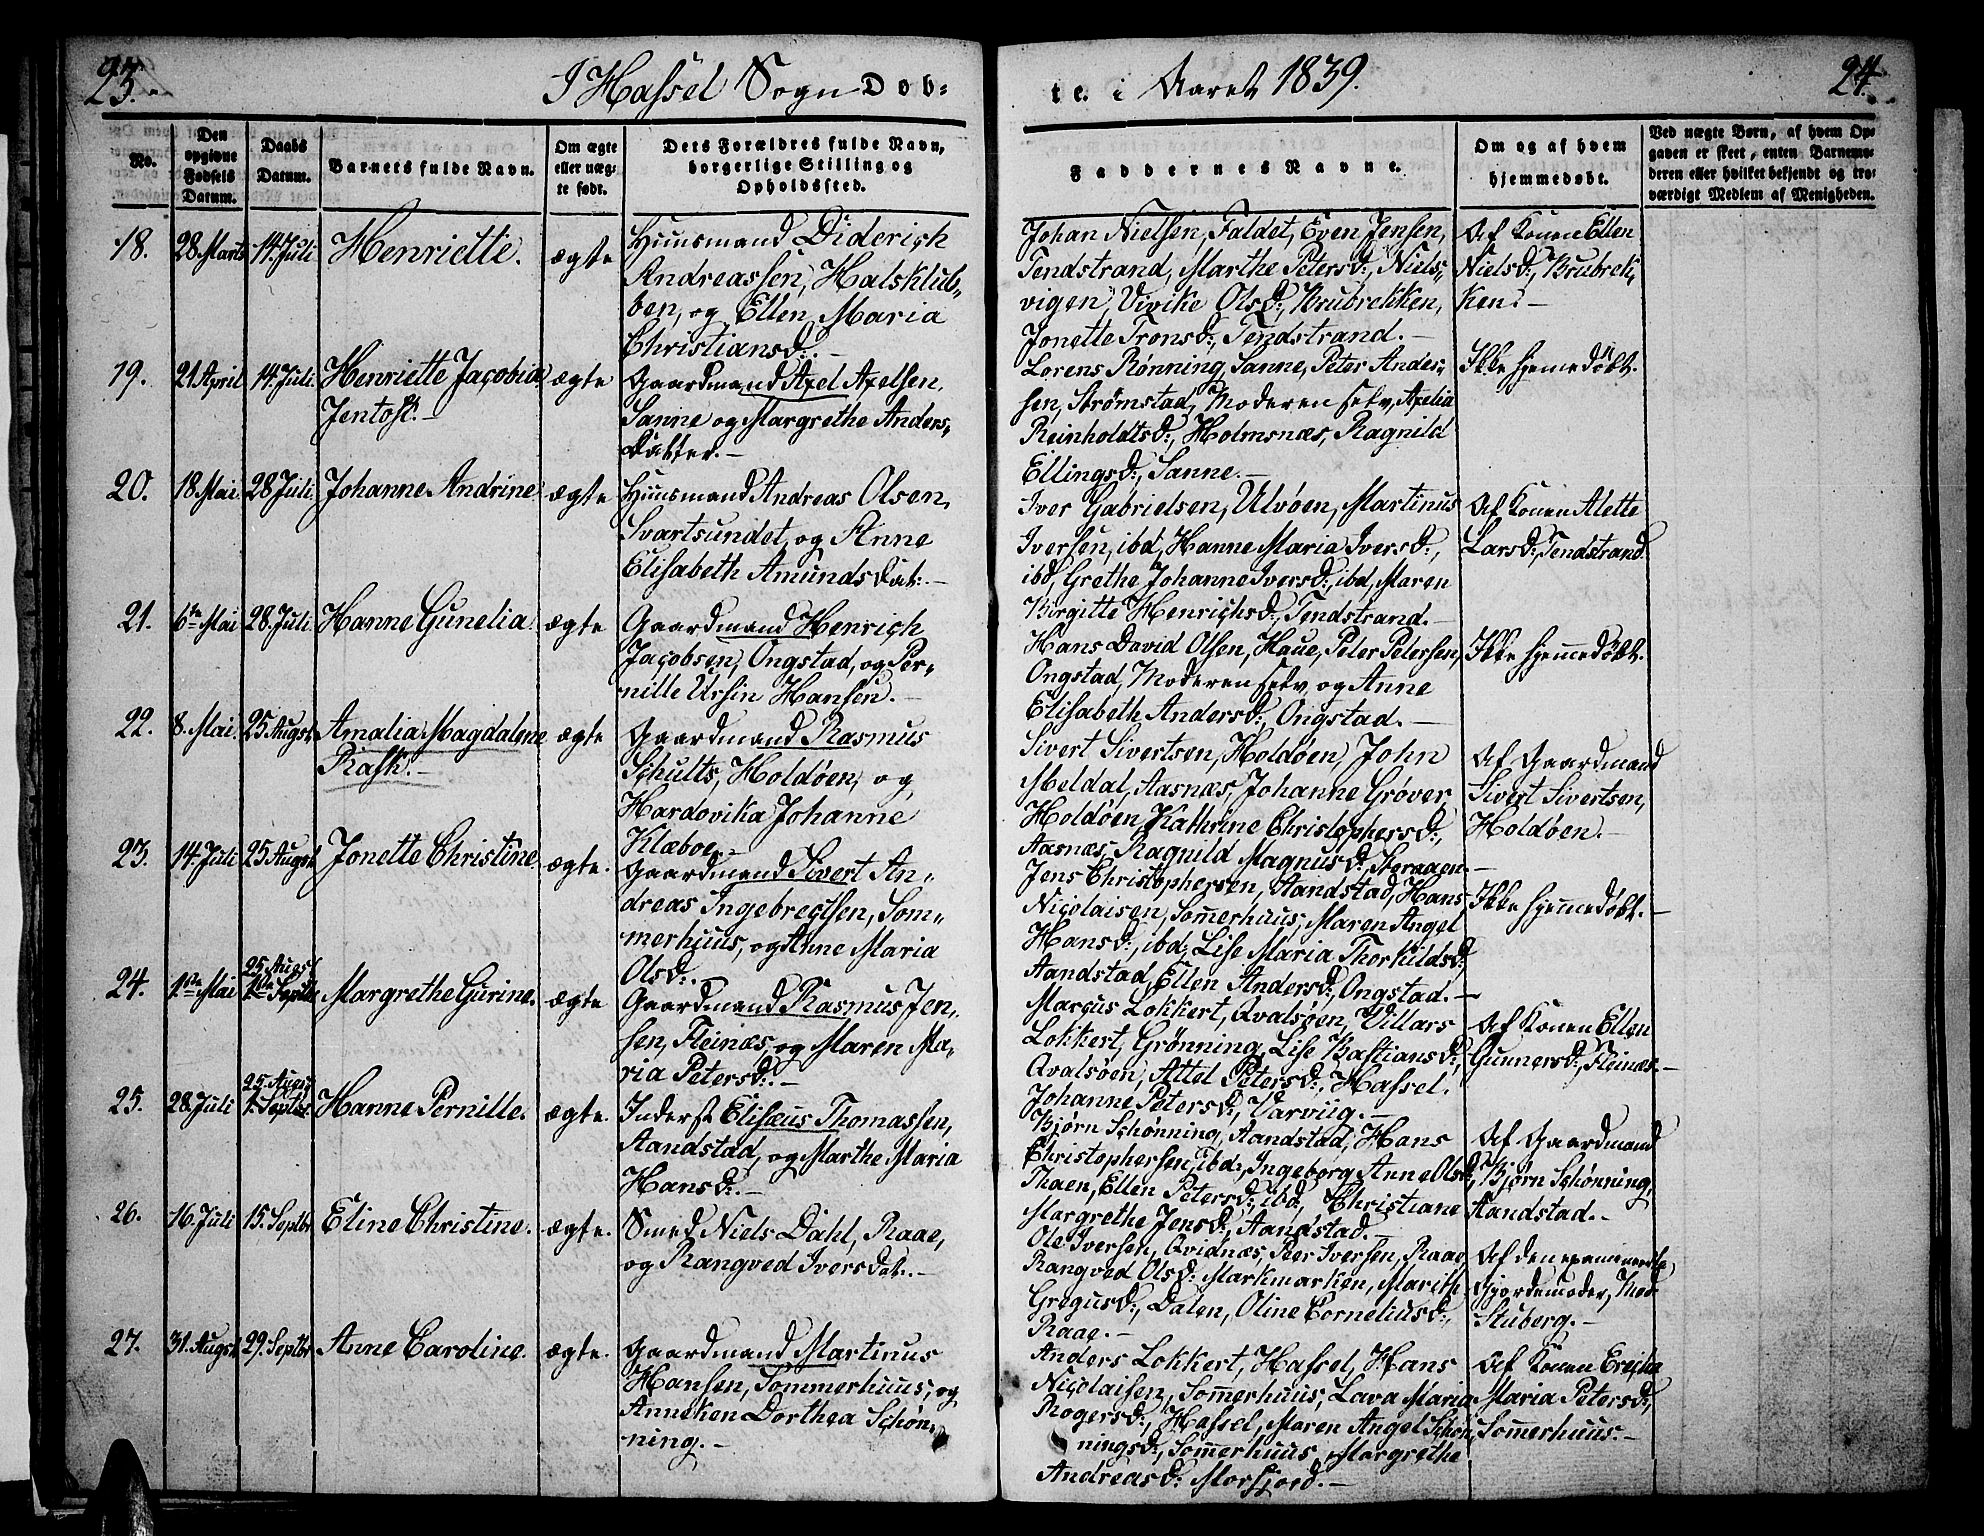 23.
I Hassel Sogn Døb-
te i Aaret 1839.
24.
No.
Den opgivne Fødsels Datum.
Daabs Datum.
Barnets fulde Navn.
Om ægte eller uægte født.
Dets Forældres fulde Navn, borgerlige Stilling og Opholdssted.
Faddernes Navne.
Om og af hvem hjemmedøbt.
Ved uægte Børn, af hvem Opgaven er skeet, enten Barnemoderen eller hvilket bekjendt og troværdigt Medlem af Menigheden.
18.
28. Marts
14. Juli
Henriette.
ægte
Huusmand Diderich
Andreassen, Halsklub-
ben, og Ellen Maria
Christiansd:.-
Johan Nielsen, Faldet, Even Jensen,
Tendstrand, Marthe Petersd:, Niels-
vigen, Vivike Olsd:, Brubrekken,
Jonette Tronsd:, Tendstrand.-
Af Konen Ellen
Nielsd:, Brubrek-
ken.-
19.
21 April
14. Juli
Henriette Jacobia
Jentoft.-
ægte
Gaardmand Axel Axelsen,
Sanne og Margrethe Anders-
datter.-
Lorens Rønning, Sanne, Peter Ander-
sen, Strømstad, Moderen selv, Axelia
Reinholdtsd:, Holmsnæs, Ragnild
Ellingsd:, Sanne.-
Ikke hjemmedøbt.
20.
18. Mai
28 Juli
Johanne Andrine.
ægte
Huusmand Andreas Olsen,
Svartsundet, og Anne
Elisabeth Amundsdat:.-
Iver Gabrielsen, Ulvøen, Martinus
Iversen, ibd, Hanne Maria Iversd:,
ibd, Grethe Johanne Iversd:, ibd, Maren
Birgitte Henrichsd:, Tendstrand.-
Af Konen Alette
Larsd:, Tendstrand.
21.
6te Mai
28. Juli
Hanne Gunelia.
ægte
Gaardmand Henrich
Jacobsen, Ongstad, og Per-
nille Ursin Hansen.-
Hans David Olsen, Haue, Peter Petersen,
Ongstad, Moderen selv og Anne
Elisabeth Andersd:, Ongstad.-
Ikke hjemmedøbt.
22.
8. Mai.
25 Augst.
Amalia Magdalene
Rask.-
ægte
Gaardmand Rasmus
Schults, Holdøen, og
Hardovika Johanne
Klæboe.-
Sivert Sivertsen, Holdøen, John
Meldal, Aasnæs, Johanne Grøver
Holdøen, Kathrine Christophersd:,
Aasnæs, Ragnild Magnusd:,
Af Gaardmand
Sivert Sivertsen,
Holdøen.-
23.
14. Juli
25. Augst
Jonette Christine.
ægte.
Gaardmand Sivert An-
dreas Ingebrectsen, Som-
merhuus, og Anne Maria
Olsd:.
Jens Christophersen, Aandstad, Hans
Nicolaisen, Sommerhuus, Maren Angel
Hansd:, ibd, Lise Maria Thorkildsd:
Aandstad, Ellen Andersd:, Ongstad.-
Ikke hjemmedøbt.-
24.
1ste Mai
25. Augst
1ste Septbr
Margrethe Gurine.
ægte
Gaardmand Rasmus Jen-
sen, Fleinæs, og Maren Ma-
ria Petersd:.-
Marcus Lokkert, Qvalsøen, Villars
Lokkert, Grønning, Lise Bastiansd:,
Qvalsøen, Attel Petersd:, Hassel,
Johanne Petersd:, Varviig.-
Af Konen Ellen
Gunnersd:, Fleinæs.-
25.
28. Juli
25. Augst
1. Septbr
Hanne Pernille.
ægte.
Inderst Elisæus Thomassen,
Aandstad, og Marthe Maria
Hansd:.-
Bjørn Schønning, Aandstad, Hans
Christophersen, ibd:, Ingeborg Anne Olsd:,
Thaen, Ellen Petersd:, ibd, Christiane
Margrethe Jensd:, Aandstad.-
Af Gaardmand
Bjørn Schønning,
Aandstad.-
26.
16. Juli
15. Septbr
Eline Christine.
ægte.
Smed Niels Dahl, Raae,
og Rangved Iversdat:.-
Ole Iversen, Qvidnæs, Peer Iversen, Raae,
Rangved Olsd:, Markmarken, Marith
Gregusd:, Dalen, Oline Corneliusd:,
Raae.-
Af den examinerede
Gjordemoder, Mad.
Stuberg.-
27.
31. Augst
29. Septbr
Anne Caroline.
ægte.
Gaardmand Martinus
Hansen, Sommerhuus, og
Anneken Dorthea Schøn-
ning.-
Anders Lokkert, Hassel, Hans
Nicolaisen, Sommerhuus, Lava Maria
Rogersd:, Hassel, Maren Angel Schøn-
ningsd:, Sommerhuus, Margrethe
Andreasd: Morfjord.-
Af Konen
Maria Petersd:,
Sommerhuus.-